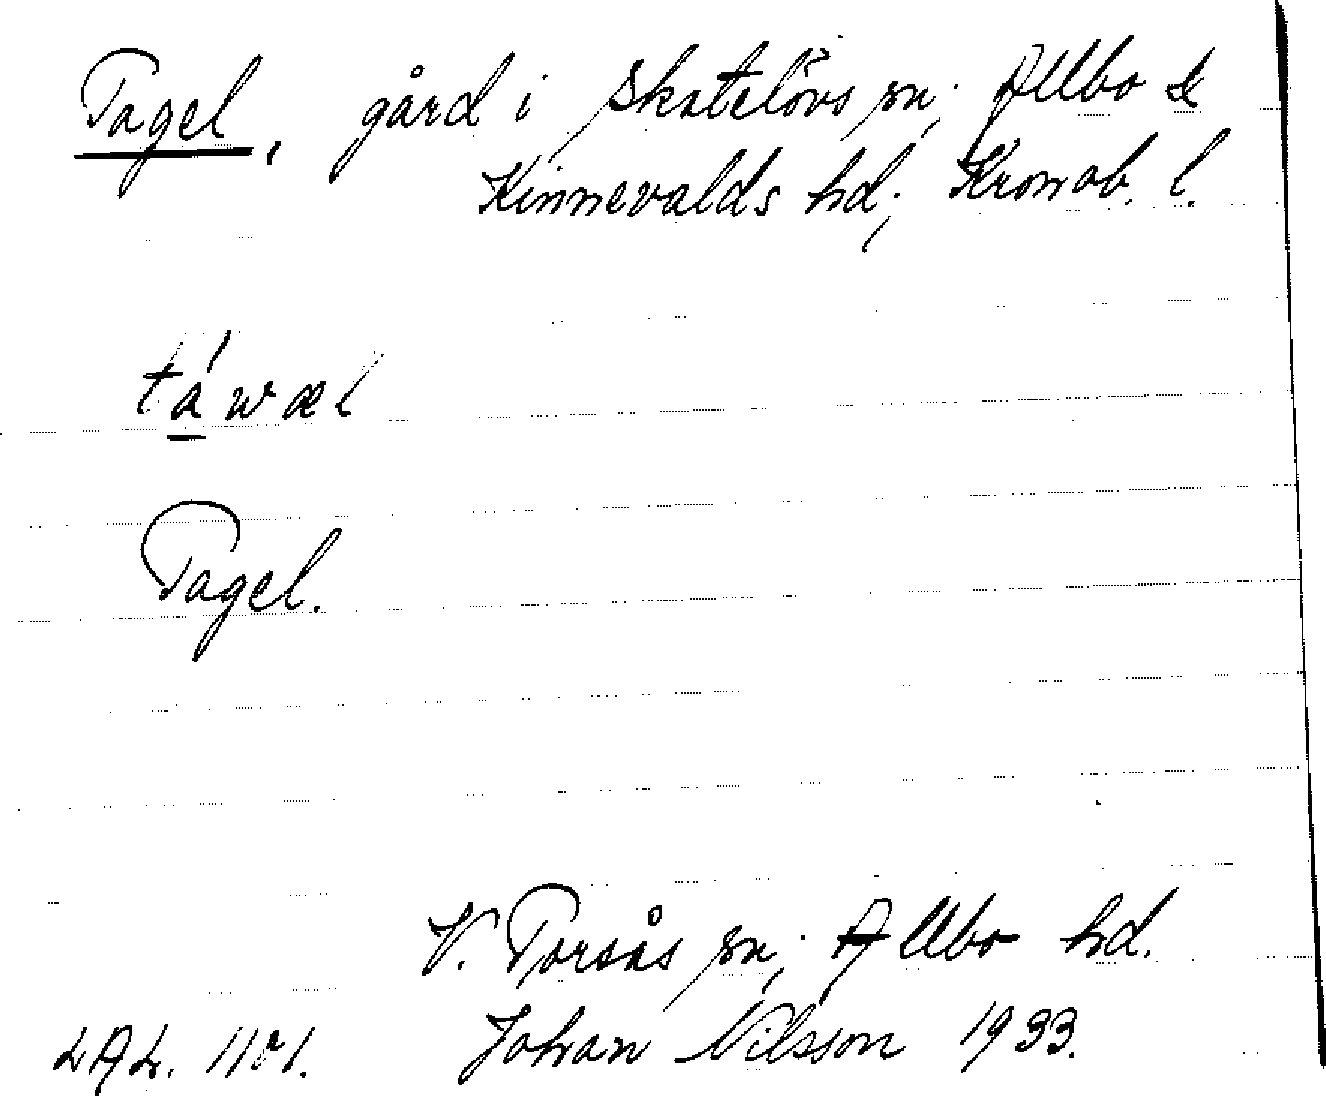 Tagel, gård i Skatelövs sn; Allbo &
Kinnevalds hd; Kronob. l.
táwæl
Tagel.
V. Torsås sn; Allbo hd.
LAL. 1101. Johan Nilsson 1933.